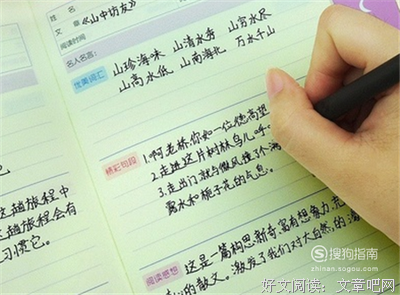 姓名
文章 《山中访友》
阅读时间
名人名言:
优美词汇 山珍海味 山清水秀 山穷水尽
山高水低 山南海北 万水千山
精彩句段 1.啊,老桥,你如一位德高望
2.走进这片树林,鸟儿呼
3.走出门,就与微风撞了个满
露水和栀子花的气息。
阅读感想 这是一篇构思新奇、富有想象力、充
的散文。激发了我们对大自然的
这趟旅程中
趟旅程会有
习惯它。
搜狗指南
zhinan.sogou.com
好文阅读: 文章吧网